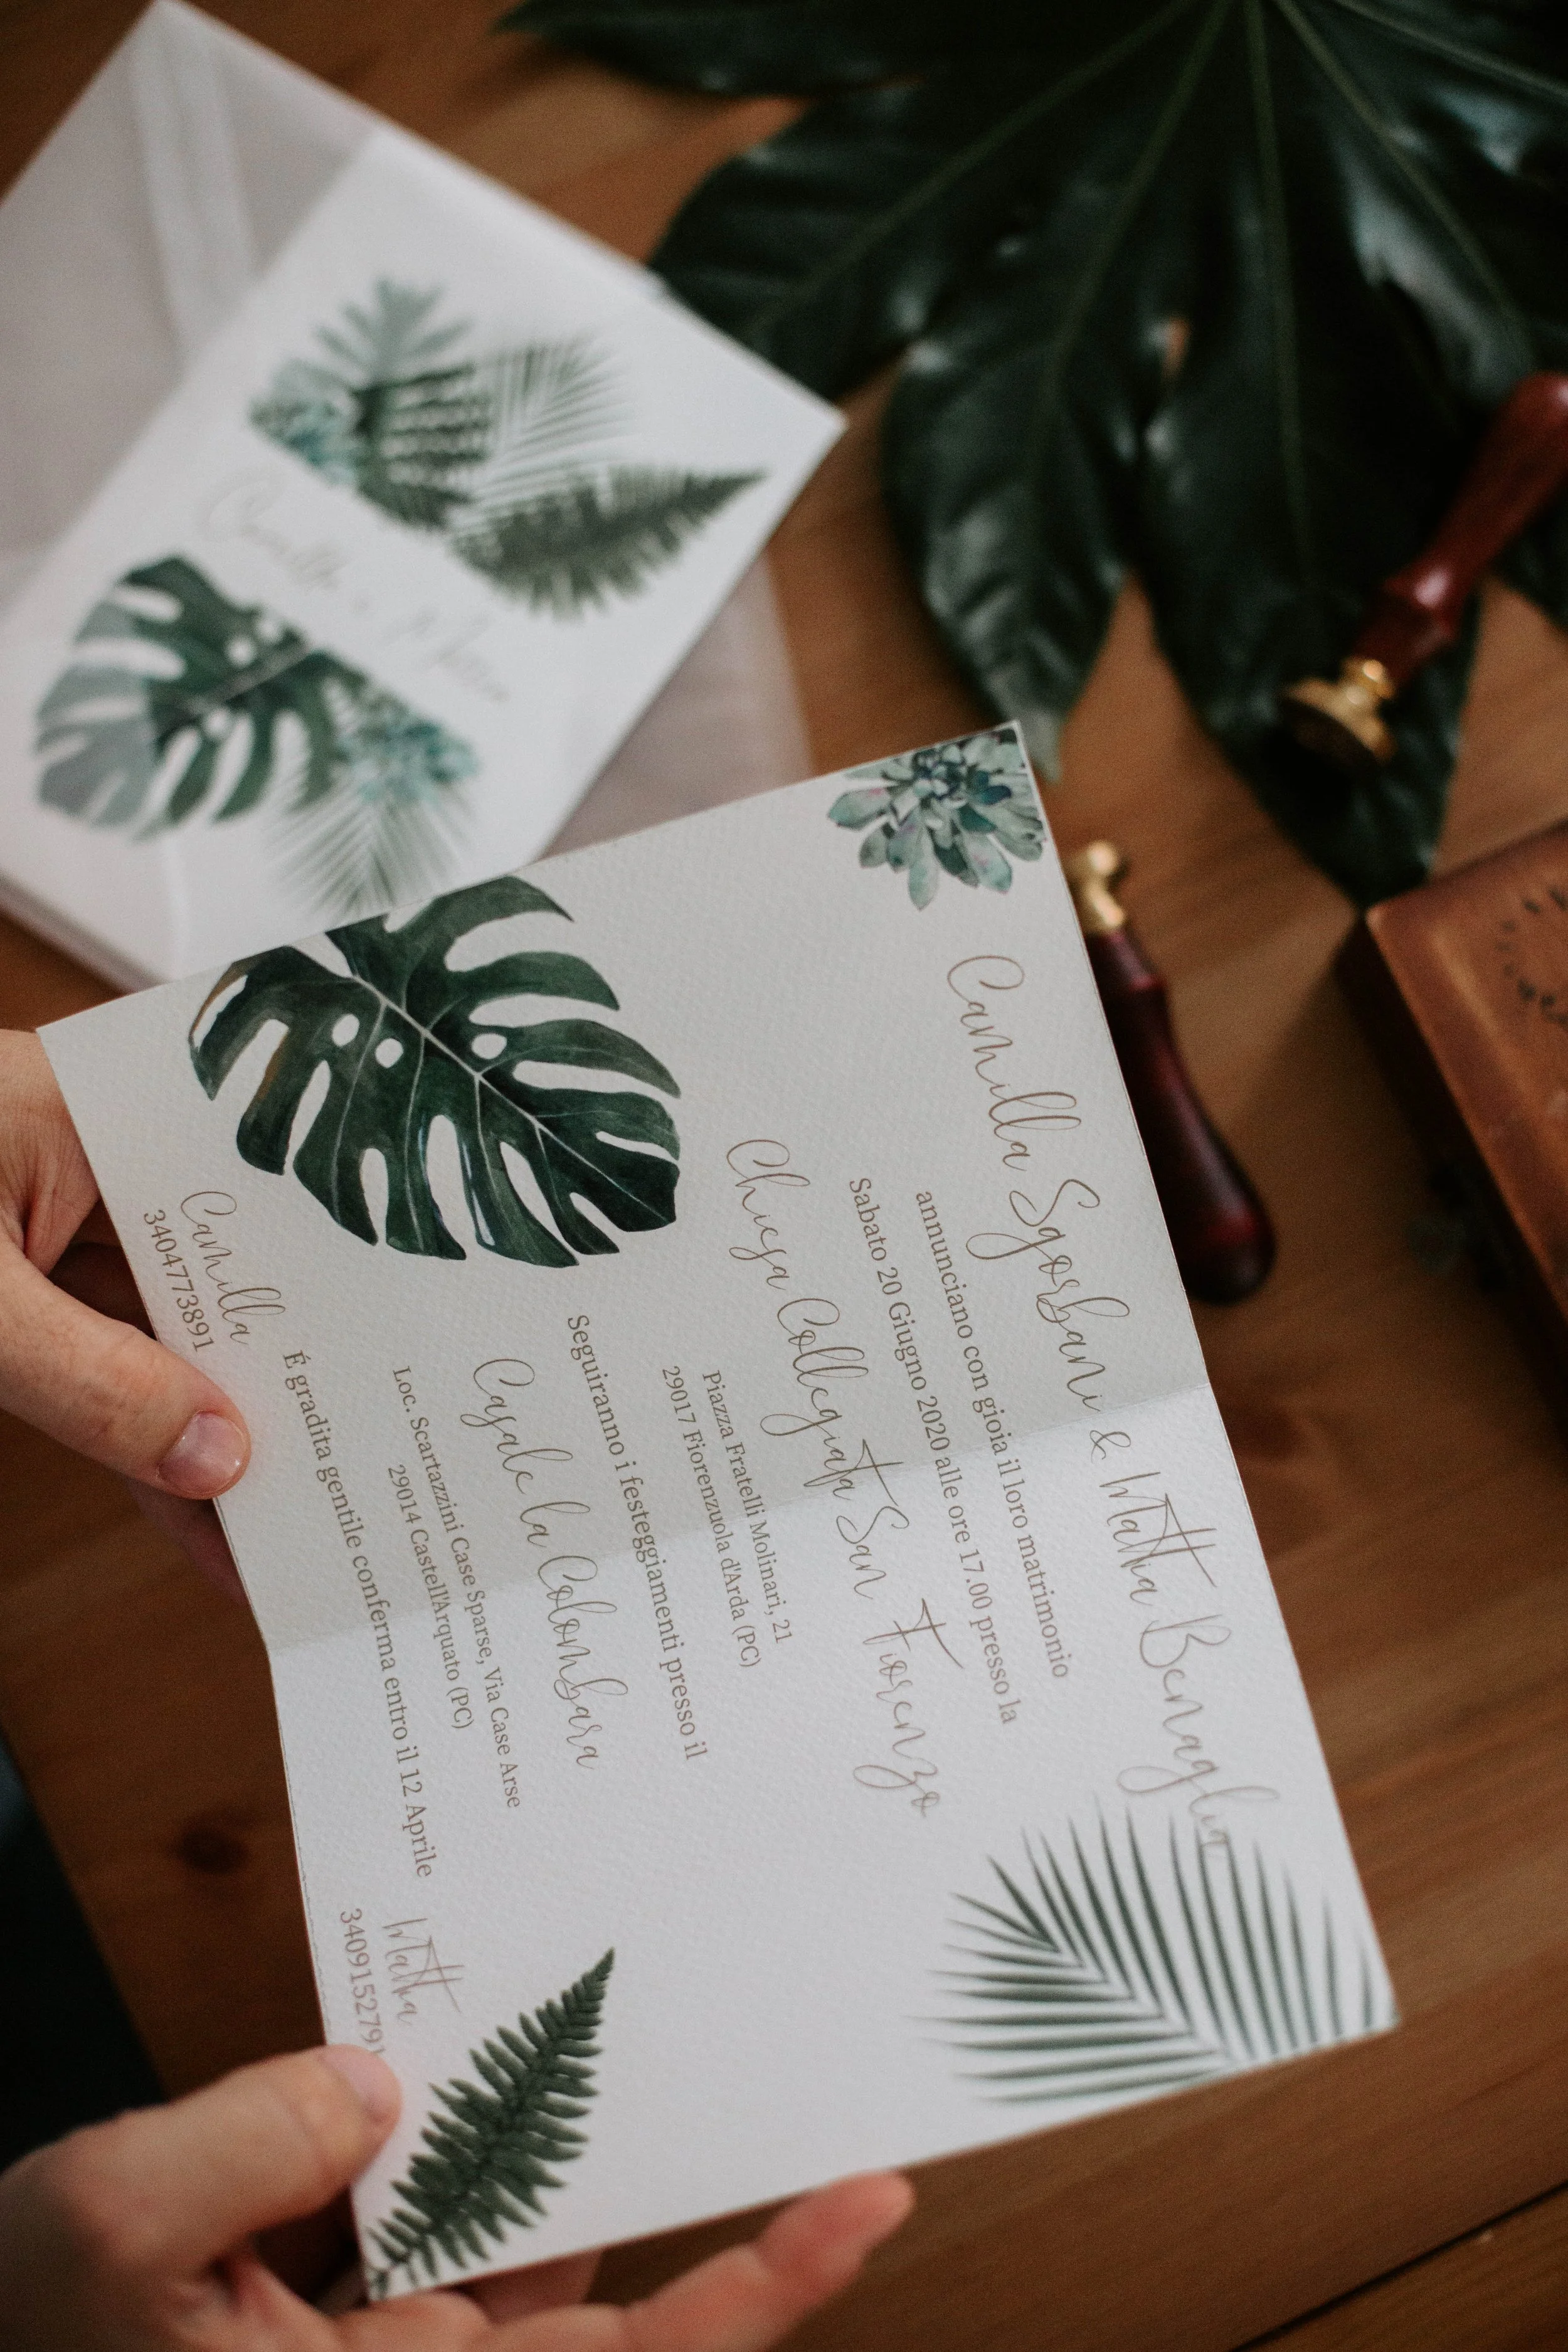 Camilla Sgorbani & Mattia Benaglia
annunciano con gioia il loro matrimonio
Sabato 20 Giugno 2020 alle ore 17.00 presso la
Chiesa Collegiata San Fiorenzo
Piazza Fratelli Molinari, 21
29017 Fiorenzuola d'Arda (PC)
Seguiranno i festeggiamenti presso il
Casale la Colombara
Loc. Scartazzini Case Sparse, Via Case Arse
29014 Castell'Arquato (PC)
É gradita gentile conferma entro il 12 Aprile
Camilla
3404773891
Mattia
3409152791
Camilla e Mattia